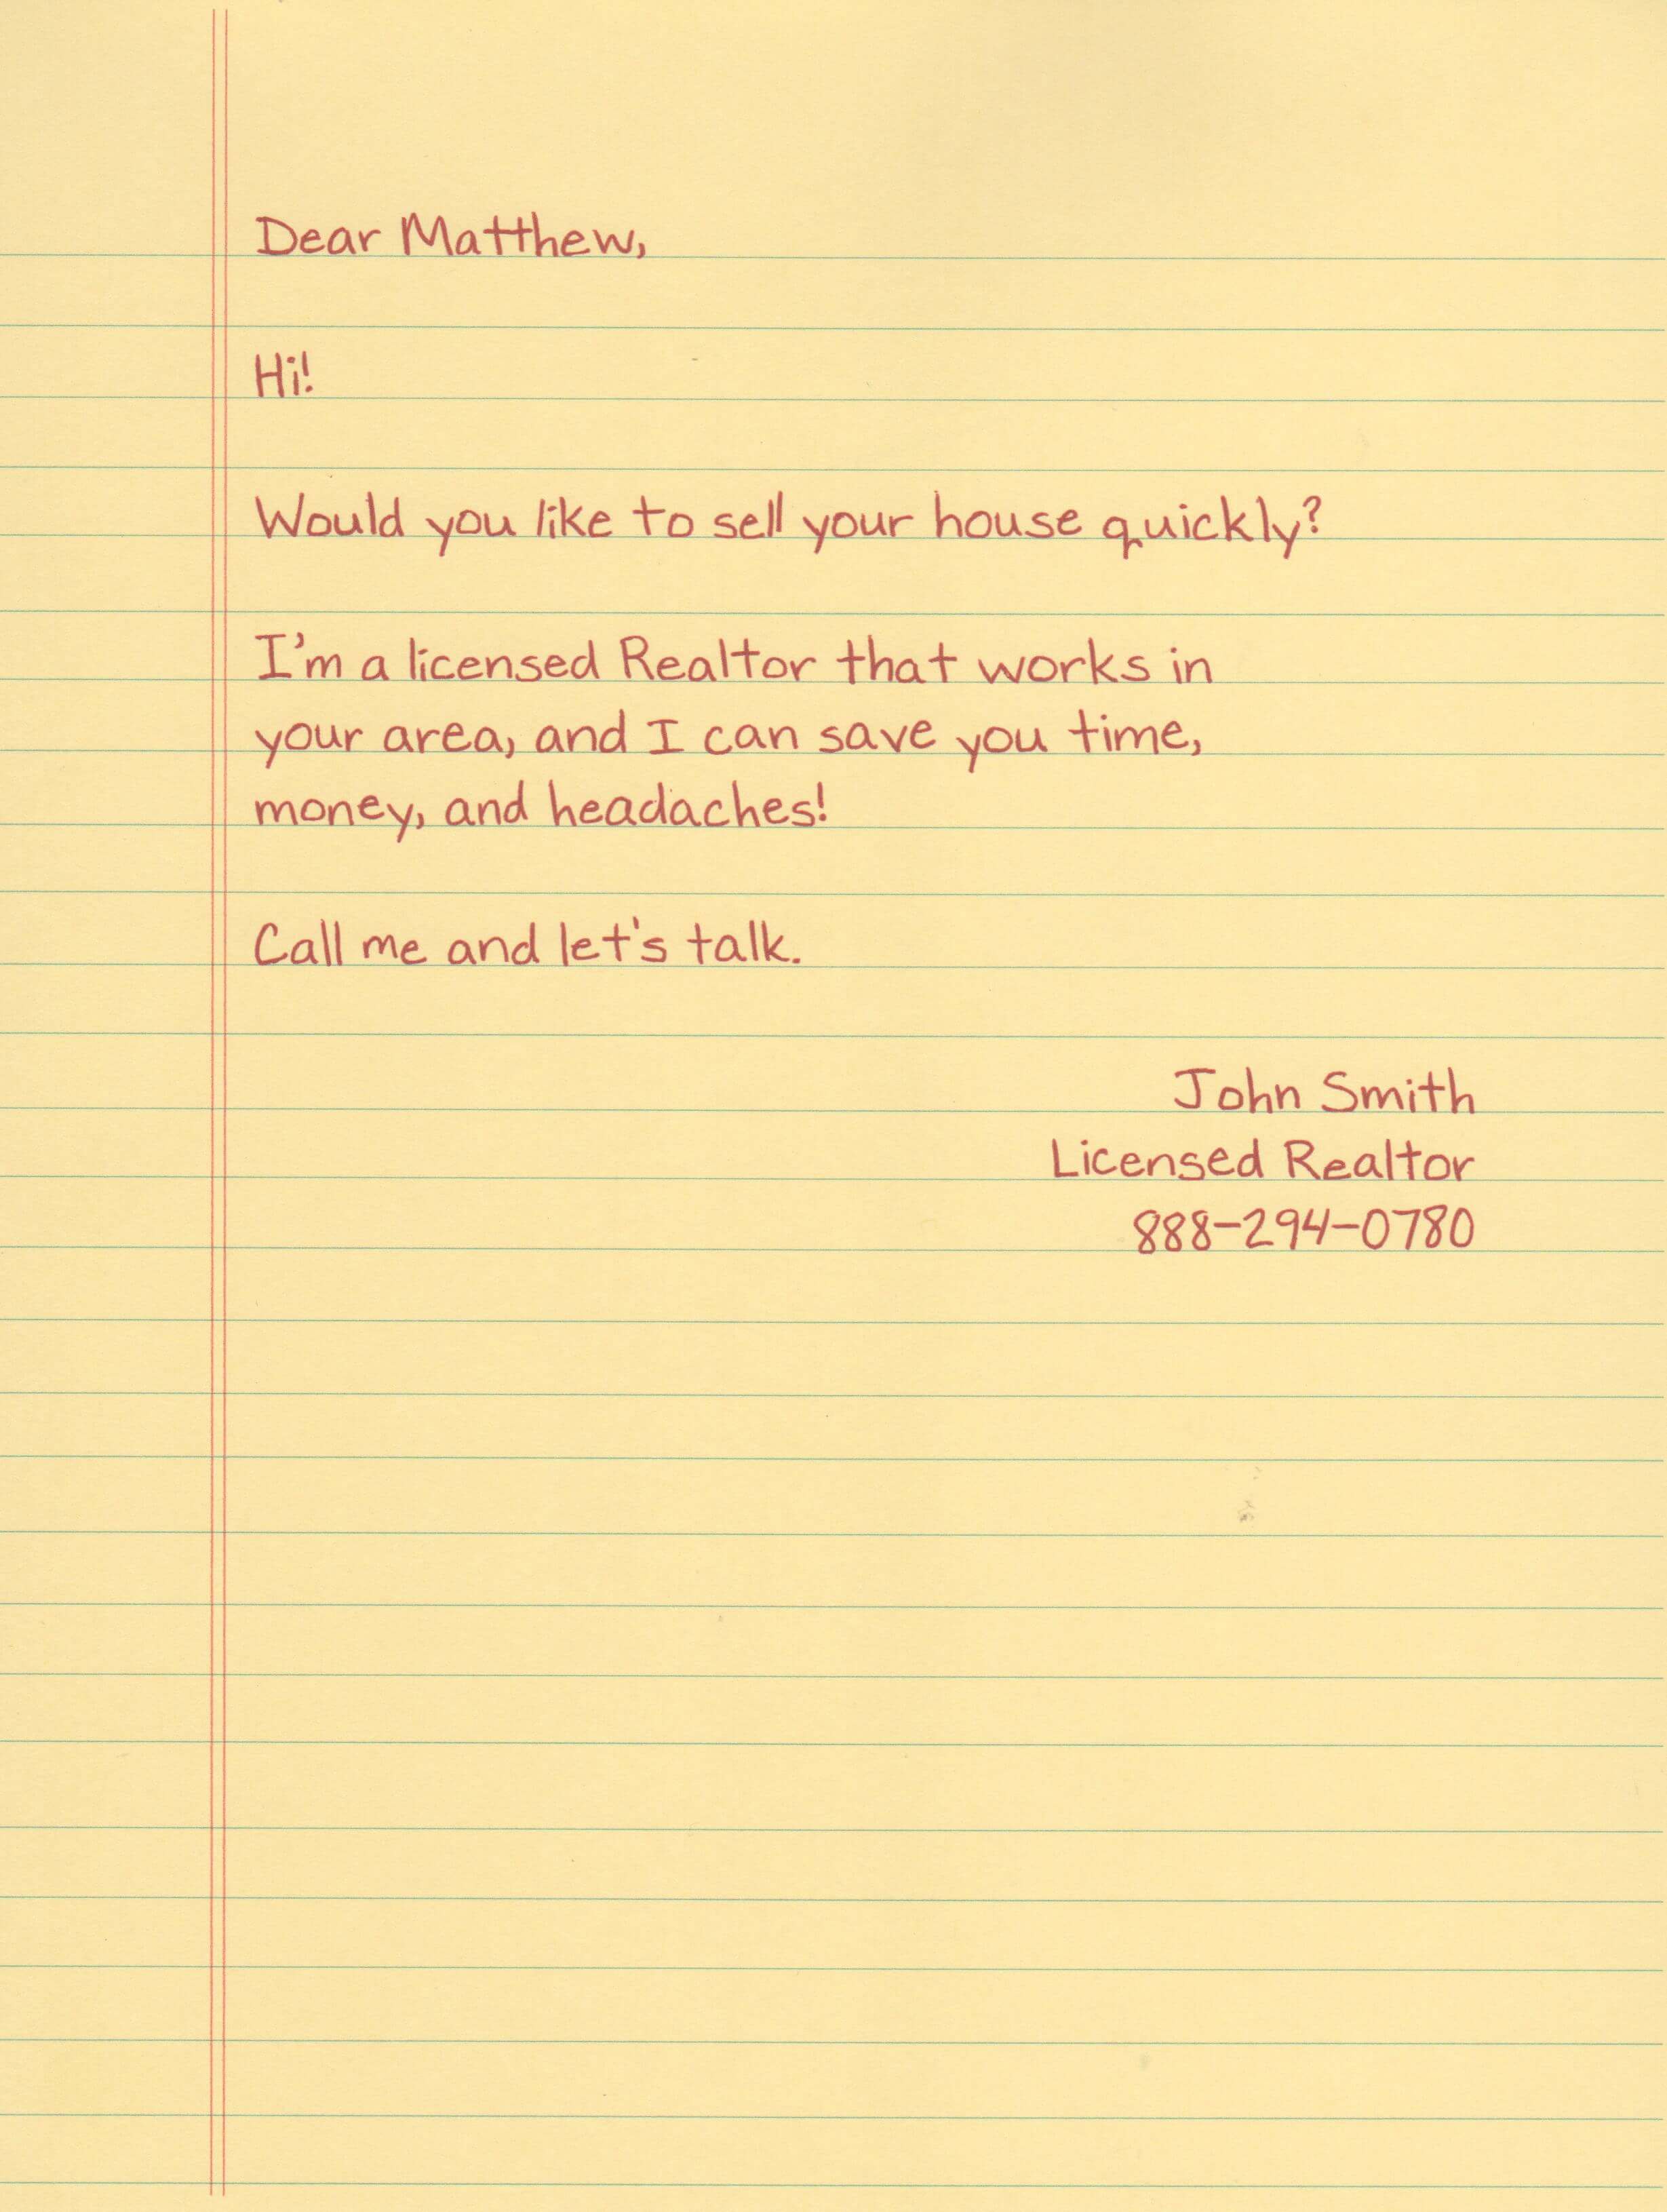 Dear Matthew,
Hi!
Would you like to sell your house quickly?
I'm a licensed Realtor that works in
your area, and I can save you time,
money, and headaches!
Call me and let's talk.
John Smith
Licensed Realtor
888-294-0780